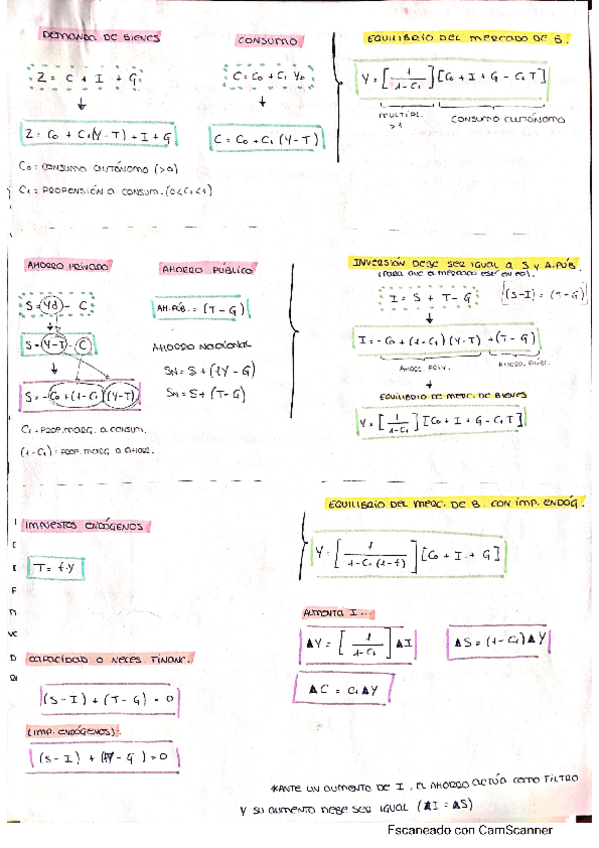 DEMANDA DE BIENES
Z = C + I + G
Z = C0 + C1(Y-T) + I + G
C0 = CONSUMO AUTÓNOMO (>0)
C1 = PROPENSIÓN A CONSUM. (0<C1<1)
CONSUMO
C = C0 + C1 YD
C = C0 + C1 (Y-T)
EQUILIBRIO DEL MERCADO DE B.
Y = [1/1-C1] [C0 + I + G - C1T]
MULTIPL. >1
CONSUMO AUTÓNOMO
AHORRO PRIVADO
S = Yd - C
S = (Y-T) - C
S = -C0 + (1-C1)(Y-T)
C1 = PROP. MARG. A CONSUM.
(1-C1) = PROP. MARG. A AHORR.
AHORRO PÚBLICO
AH. PÚB. = (T-G)
AHORRO NACIONAL
SN = S + (T-G)
INVERSIÓN DEBE SER IGUAL A S Y A. PÚB.
(PARA QUE EL MERCADO ESTÉ EN EQ).
I = S + T - G
(S-I) = (T-G)
I = -C0 + (1-C1)(Y-T) + (T-G)
AHORR. PRIV.
AHORR. PÚBL.
EQUILIBRIO DE MERC. DE BIENES
Y = [1/1-C1] [C0 + I + G - C1T]
IMPUESTOS ENDÓGENOS
T = t·Y
EQUILIBRIO DEL MERC. DE B. CON IMP. ENDÓG.
Y = [1/1-C1(1-t)] [C0 + I + G]
AUMENTA I...
ΔY = [1/1-C1] ΔI
ΔS = (1-C1)ΔY
ΔC = C1ΔY
CAPACIDAD O NECES. FINANC.
(S-I) + (T-G) = 0
(IMP. ENDÓGENOS).
(S-I) + (tY-G) = 0
*ANTE UN AUMENTO DE I, EL AHORRO ACTÚA COMO FILTRO
Y SU AUMENTO DEBE SER IGUAL (ΔI = ΔS)
Escaneado con CamScanner